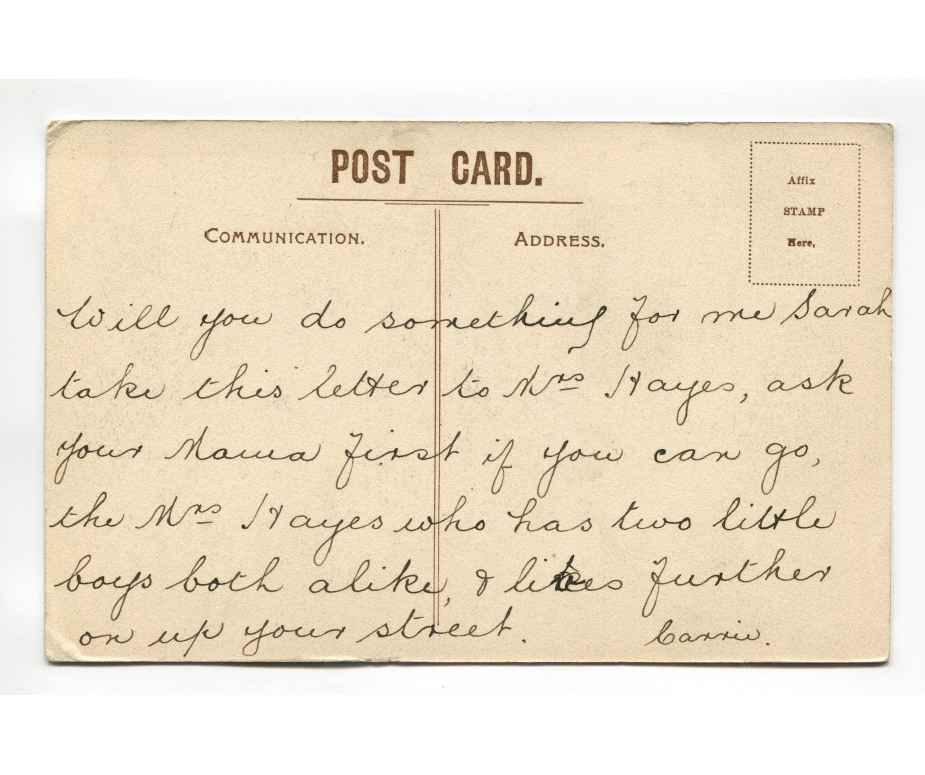 POST CARD.
COMMUNICATION.
ADDRESS.
Affix
STAMP
Here.
Will you do something for me Sarah
take this letter to Mrs Hayes, ask
your Mama first if you can go,
the Mrs Hayes who has two little
boys both alike, & likes further
on up your street. Carrie.